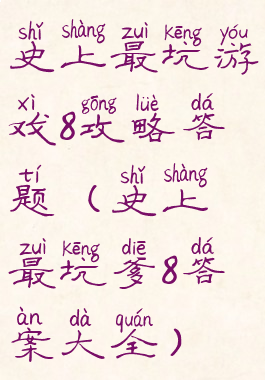 shǐ shàng zuì kēng yóu
史上最坑游
xì gōng lüè dá
戏8攻略答
tí shǐ shàng
题（史上
zuì kēng diē dá
最坑爹8答
àn dà quán
案大全）